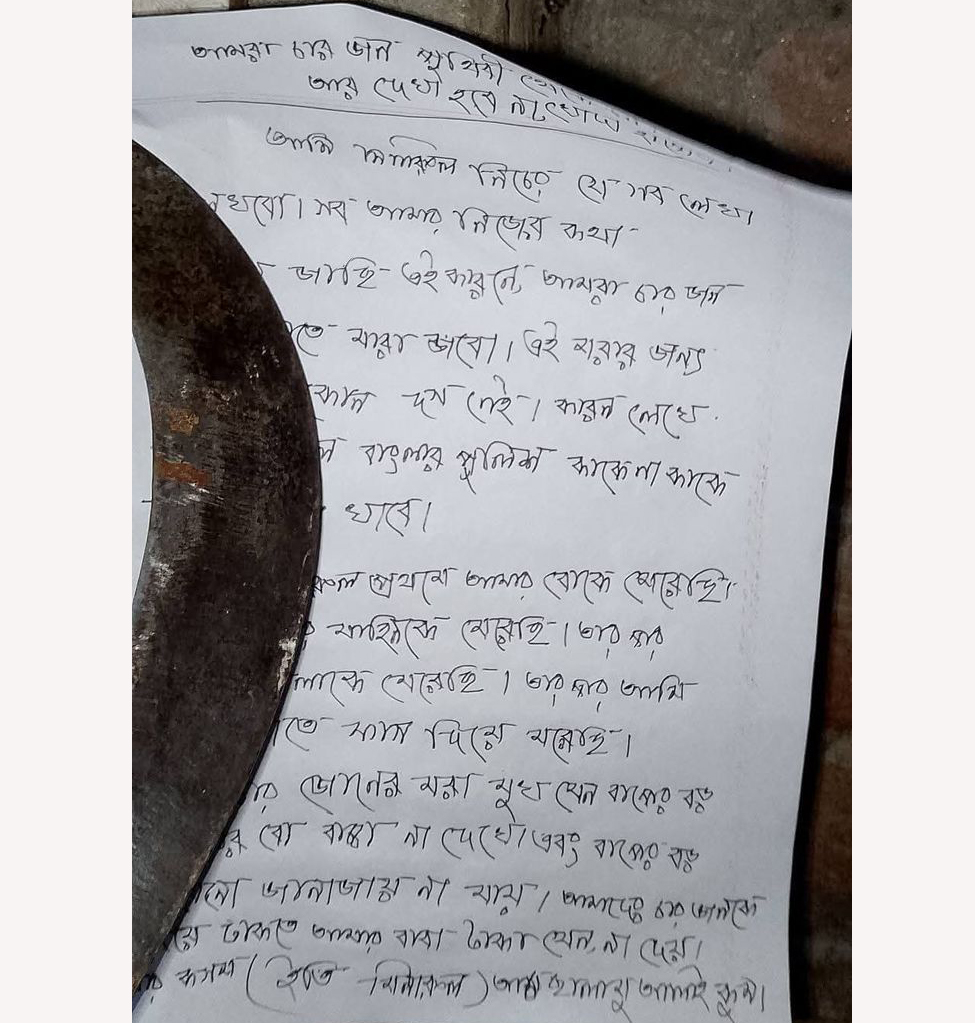 আমরা চার জন পৃথিবী
আর দেখা হবে না খোদা
আমি মিনারুল নিচের যে সব লেখা
লিখবো। সব আমার নিজের কথা
জাছি এই কারনে, আমরা চার জন
রাতে মারা জাবো। এই মরার জন্য
কোন দস নেই। কারন লেখে
বাংলার পুলিশ কাকে না কাকে
খাবে।
প্রথমে আমার বৌকে মেরেছি।
মাহিমকে মেরেছি। তার পর
মেরেছি। তার পর আমি
ফাস দিয়ে মরেছি।
চার জোনের মরা মুখ যেন বাপের বড়
বৌ বাচ্চা না দেখে এবং বাপের বড়
জানাজায় না যায়। আমাদের চার জনকে
ঢাকতে আমার বাবা টাকা যেন, না দেয়।
কসম (ইতি মিনারুল) আসছালামু আলাই কুম।